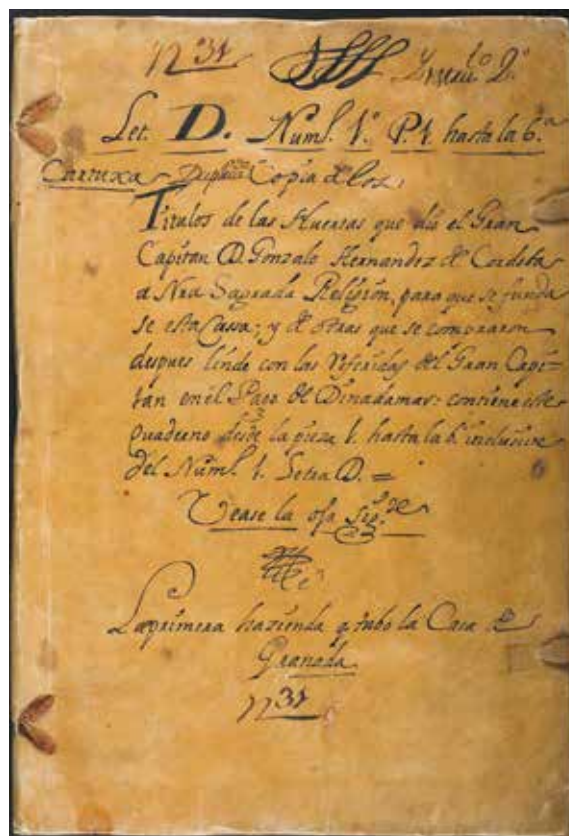 n 31
Let. D. Numº. 1.º P. 1. hasta la 6.ª
Cartuxa Copia de los
Titulos de las Huertas que dió el Gran
Capitan D. Gonzalo Hernandez de Cordoba
a Nra Sagrada Religión, para que se funda
se esta Cassa; y de otras que se compraron
despues linde con las referidas del Gran Capi=
tan en el Pago de Dinadamar: contiene este
quaderno desde la pieza 1. hasta la 6. inclusive
del Numº. 1. Letra D. =
Vease la oja Sigᵗᵉ
La primera hazienda q tubo la Casa de
Granada.
n 31